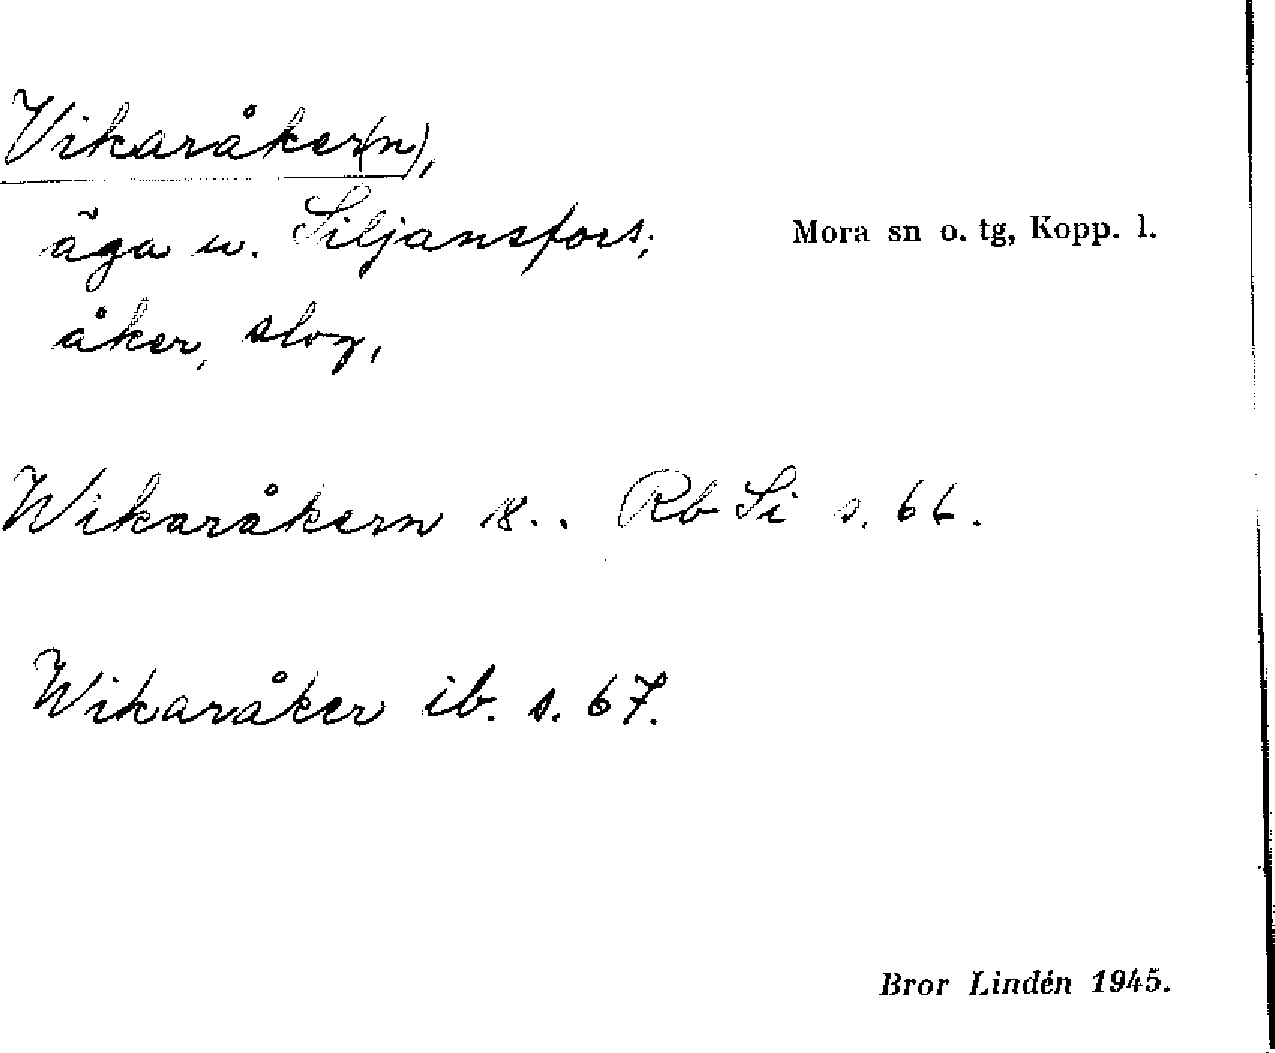 Vikaråker(n),
äga u. Siljansfors;
Mora sn o. tg, Kopp. l.
åker, slog,
Wikaråkern 18.. Rb Si s. 66.
Wikaråker ib. s. 67.
Bror Lindén 1945.